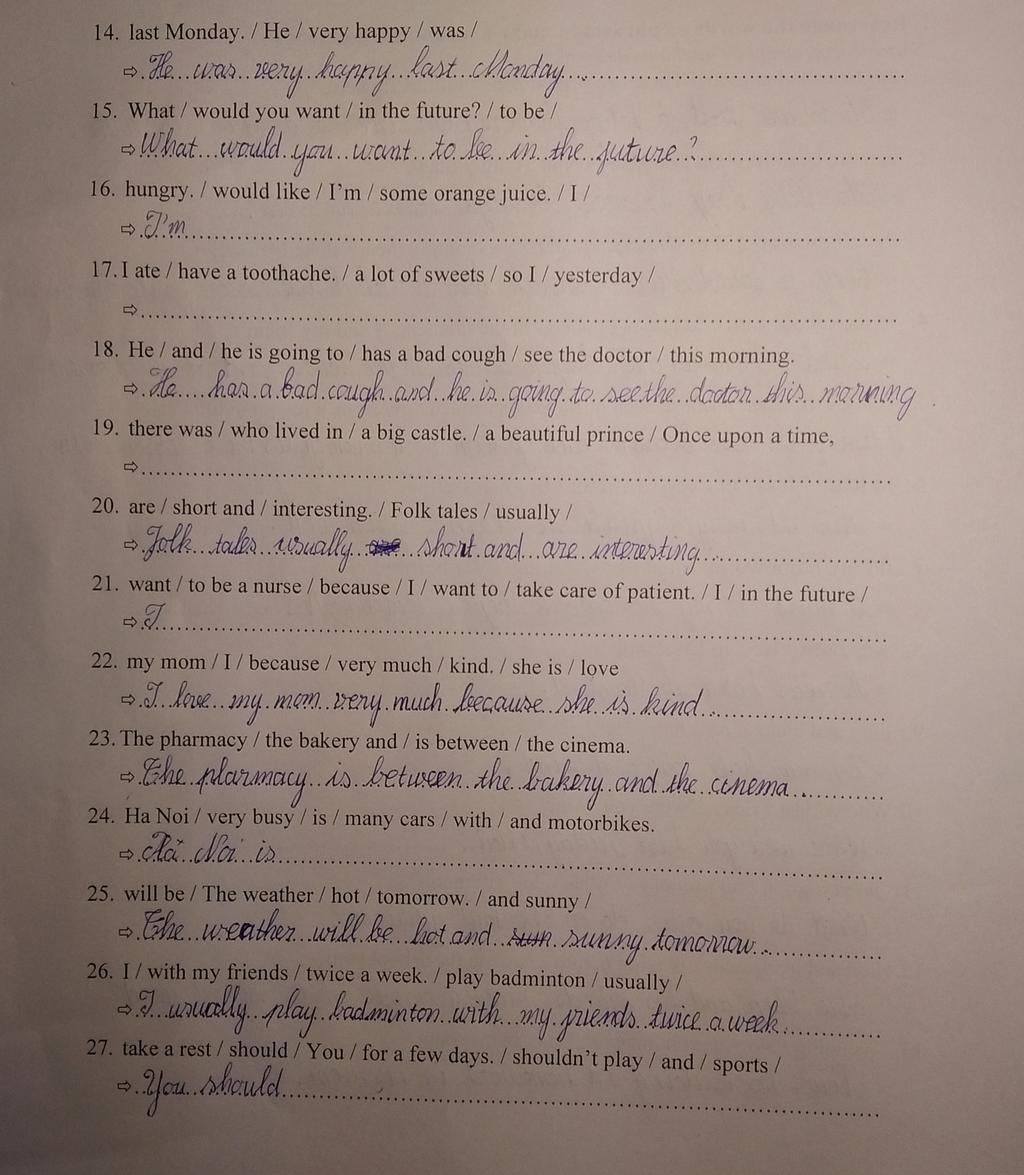 14. last Monday. / He / very happy / was /
⇨ He was very happy last Monday
15. What / would you want / in the future? / to be /
⇨ What would you want to be in the future?
16. hungry. / would like / I'm / some orange juice. / I /
⇨ I'm
17. I ate / have a toothache. / a lot of sweets / so I / yesterday /
⇨
18. He / and / he is going to / has a bad cough / see the doctor / this morning.
⇨ He has a bad cough and he is going to see the doctor this morning.
19. there was / who lived in / a big castle. / a beautiful prince / Once upon a time,
⇨
20. are / short and / interesting. / Folk tales / usually /
⇨ Folk tales usually are short and are interesting
21. want / to be a nurse / because / I / want to / take care of patient. / I / in the future /
⇨ I
22. my mom / I / because / very much / kind. / she is / love
⇨ I love my mom very much because she is kind.
23. The pharmacy / the bakery and / is between / the cinema.
⇨ The plarmacy is between the bakery and the cinema.
24. Ha Noi / very busy / is / many cars / with / and motorbikes.
⇨ Hà Nội is
25. will be / The weather / hot / tomorrow. / and sunny /
⇨ The weather will be hot and sun sunny tomorrow.
26. I / with my friends / twice a week. / play badminton / usually /
⇨ I usually play badminton with my friends twice a week
27. take a rest / should / You / for a few days. / shouldn't play / and / sports /
⇨ You should